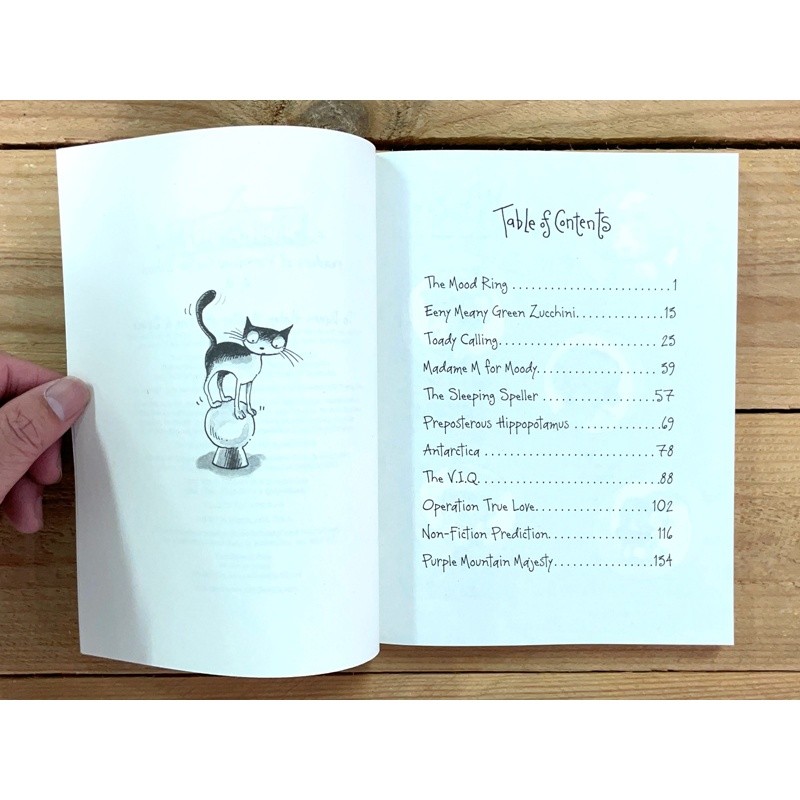 Table of Contents
The Mood Ring . . . . . . . . . . . . . . . . . . . . . . . . . 1
Eeny Meany Green Zucchini. . . . . . . . . . . . . 13
Toady Calling. . . . . . . . . . . . . . . . . . . . . . . . . 23
Madame M for Moody. . . . . . . . . . . . . . . . . . . 39
The Sleeping Speller . . . . . . . . . . . . . . . . . 57
Preposterous Hippopotamus . . . . . . . . . . . . . 69
Antarctica . . . . . . . . . . . . . . . . . . . . . . . . . . 78
The V.I.Q. . . . . . . . . . . . . . . . . . . . . . . . . . . 88
Operation True Love. . . . . . . . . . . . . . . . . . 102
Non-Fiction Prediction. . . . . . . . . . . . . . . . 116
Purple Mountain Majesty. . . . . . . . . . . . . . . 134